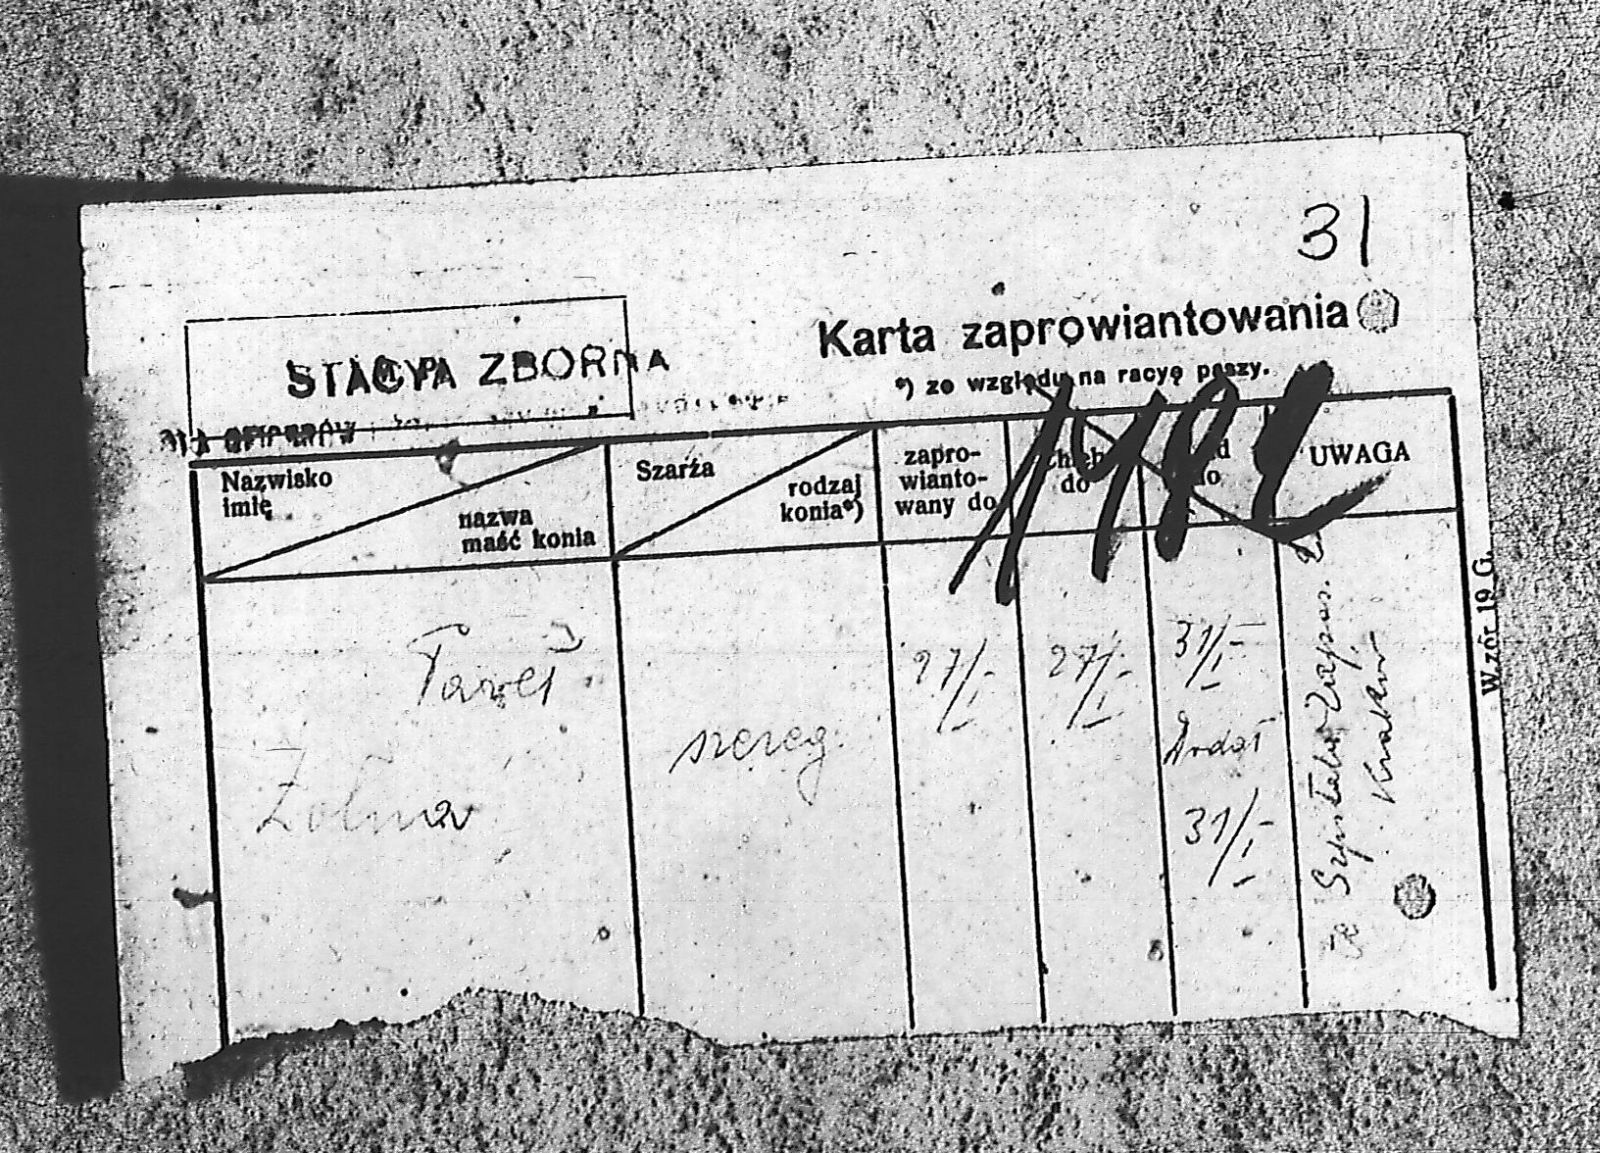 31
Karta zaprowiantowania
*) ze względu na racyę paszy.
STACYA ZBORNA
Nazwisko
imię
nazwa
maść konia
Szarża
rodzaj
konia*)
zapro-
wianto-
wany do
chleb
do
do
UWAGA
Paweł
Żołna
szereg.
27/I
27/I
31/I
żołd
31/I
Ze Szpitala Zapas.
Kraków
Wzór 19 G.